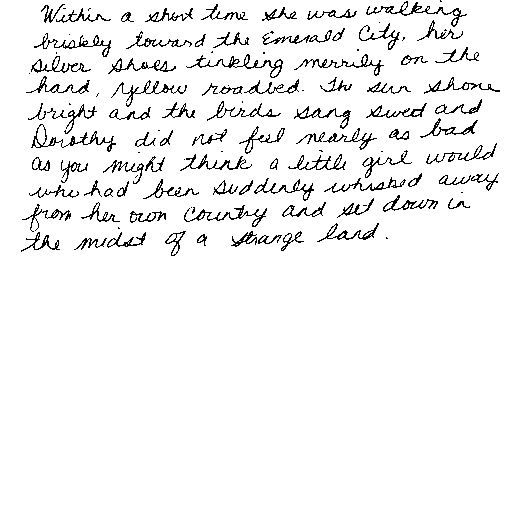 Within a short time she was walking
briskly toward the Emerald City, her
silver shoes tinkling merrily on the
hand, yellow roadbed. The sun shone
bright and the birds sang sweet and
Dorothy did not feel nearly as bad
as you might think a little girl would
who had been suddenly whisked away
from her own country and set down in
the midst of a strange land.